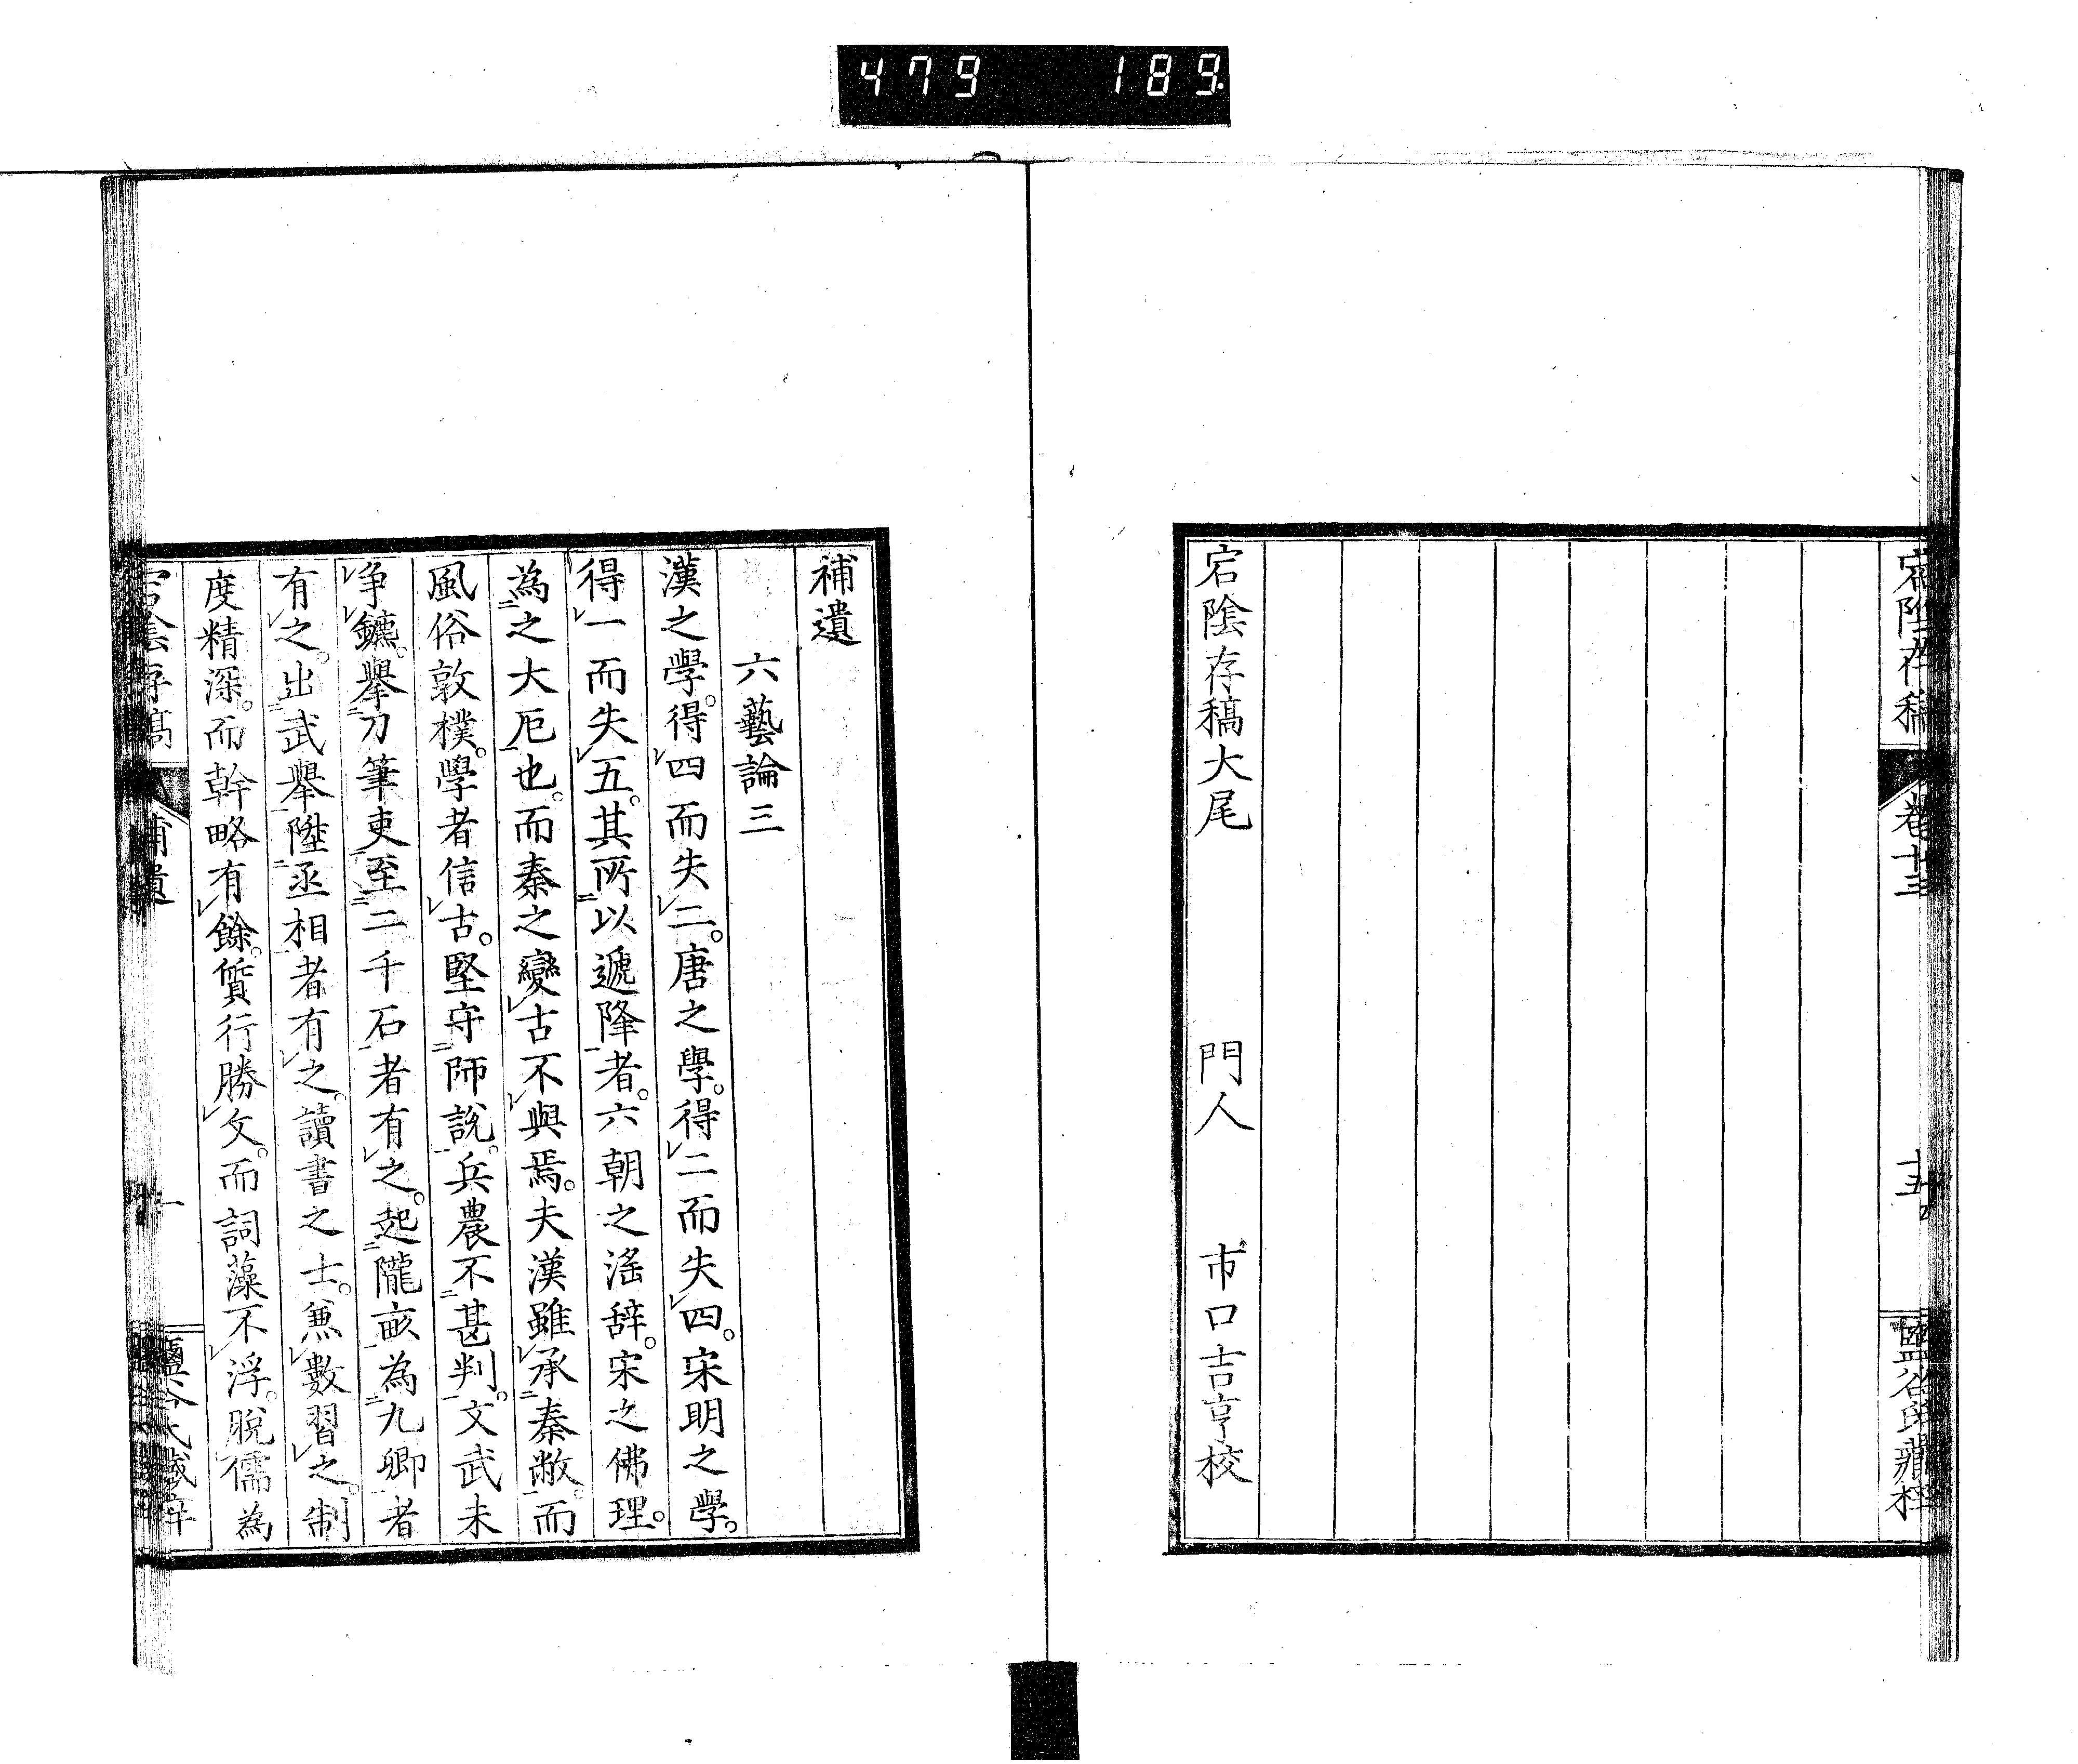 479 189
宕陰存稿 卷十三 十五
宕陰存稿大尾 門人 市口吉亨校
補遺
六藝論三
漢之學。得四而失二。唐之學。得二而失四。宋明之學。
得一而失五。其所以遞降者。六朝之淫辭。宋之佛理。
為之大厄也。而秦之變古不與焉。夫漢雖承秦敝。而
風俗敦樸。學者信古。堅守師說。兵農不甚判。文武未
争鑣。擧刀筆吏至二千石者有之。起隴畝為九卿者
有之。出武擧陞丞相者有之。讀書之士。兼數習之。制
度精深。而幹略有餘。質行勝文。而詞藻不浮。脫儒為
宕陰存稿 補遺 一